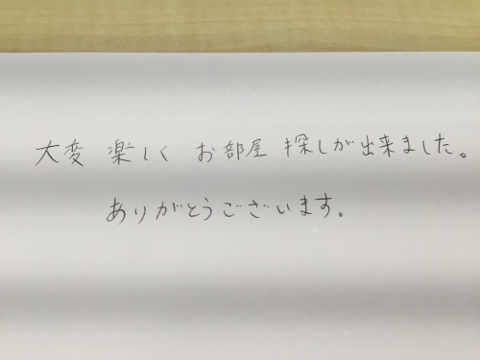 大変 楽しく お部屋 探しが出来ました。
ありがとうございます。